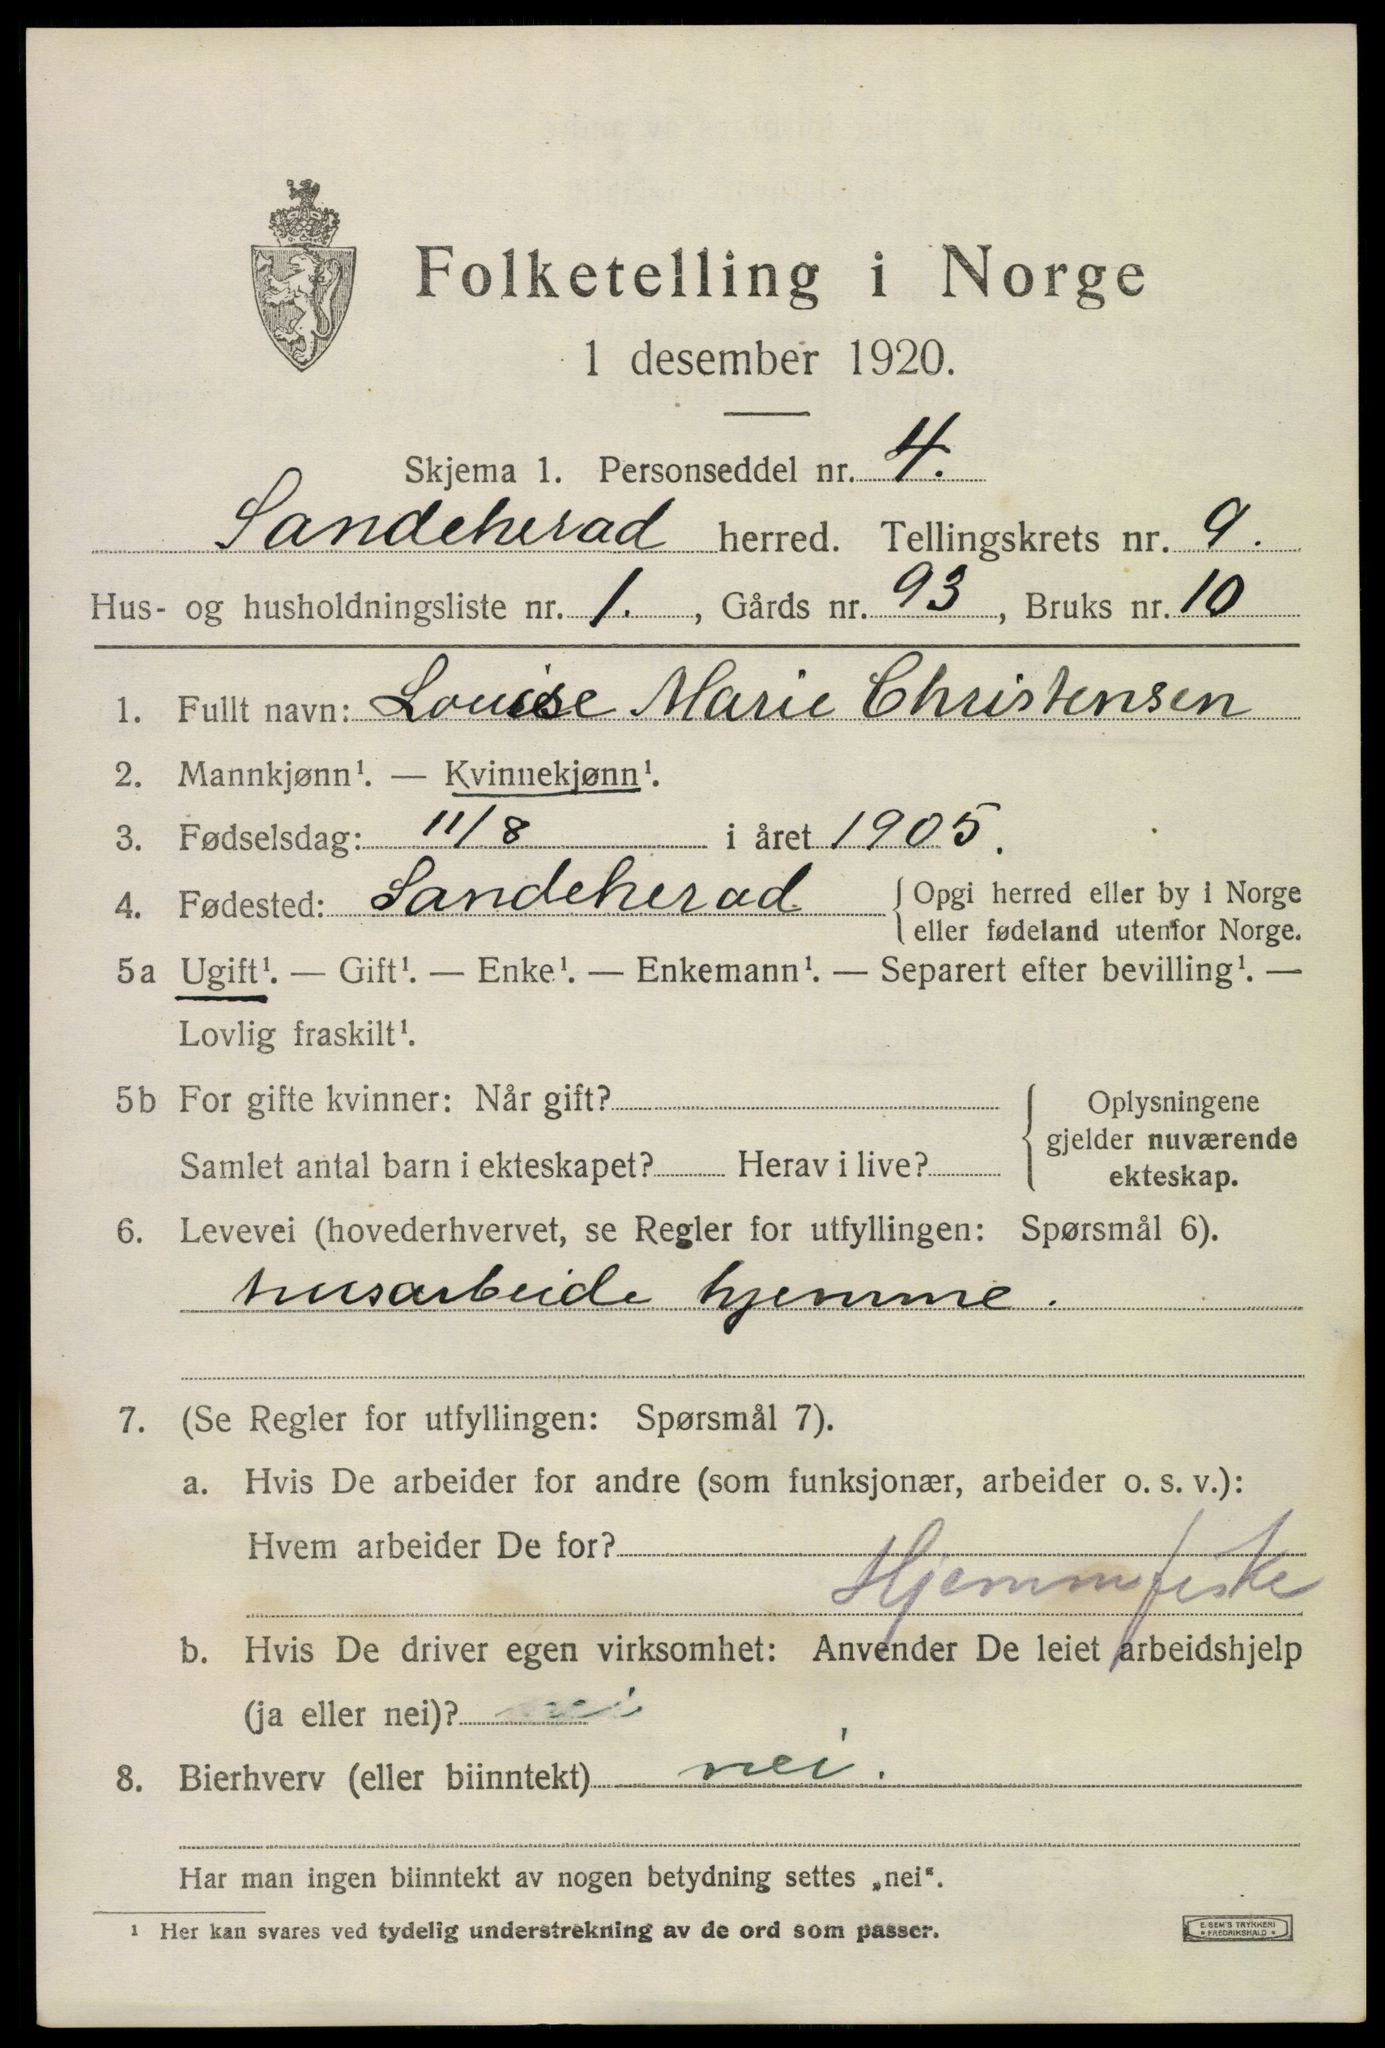 Folketelling i Norge
1 desember 1920.
Skjema 1. Personseddel nr. 4.
Sandeherad herred. Tellingskrets nr. 9.
Hus- og husholdningsliste nr. 1., Gårds nr. 93, Bruks nr. 10
1. Fullt navn: Louise Marie Christensen
2. Mannkjønn¹. — Kvinnekjønn¹.
3. Fødselsdag: 11/8 i året 1905.
4. Fødested: Sandeherad { Opgi herred eller by i Norge
eller fødeland utenfor Norge.
5a Ugift¹. — Gift¹. — Enke¹. — Enkemann¹. — Separert efter bevilling¹. —
Lovlig fraskilt¹.
5b For gifte kvinner: Når gift?
Samlet antal barn i ekteskapet? Herav i live?
{ Oplysningene
gjelder nuværende
ekteskap.
6. Levevei (hovederhvervet, se Regler for utfyllingen: Spørsmål 6).
husarbeide hjemme.
7. (Se Regler for utfyllingen: Spørsmål 7).
a. Hvis De arbeider for andre (som funksjonær, arbeider o. s. v.):
Hvem arbeider De for?
Hjemmefiske
b. Hvis De driver egen virksomhet: Anvender De leiet arbeidshjelp
(ja eller nei)? nei
8. Bierhverv (eller biinntekt) nei.
Har man ingen biinntekt av nogen betydning settes „nei“.
¹ Her kan svares ved tydelig understrekning av de ord som passer.
E. SEM'S TRYKKERI
* FREDRIKSHALD *